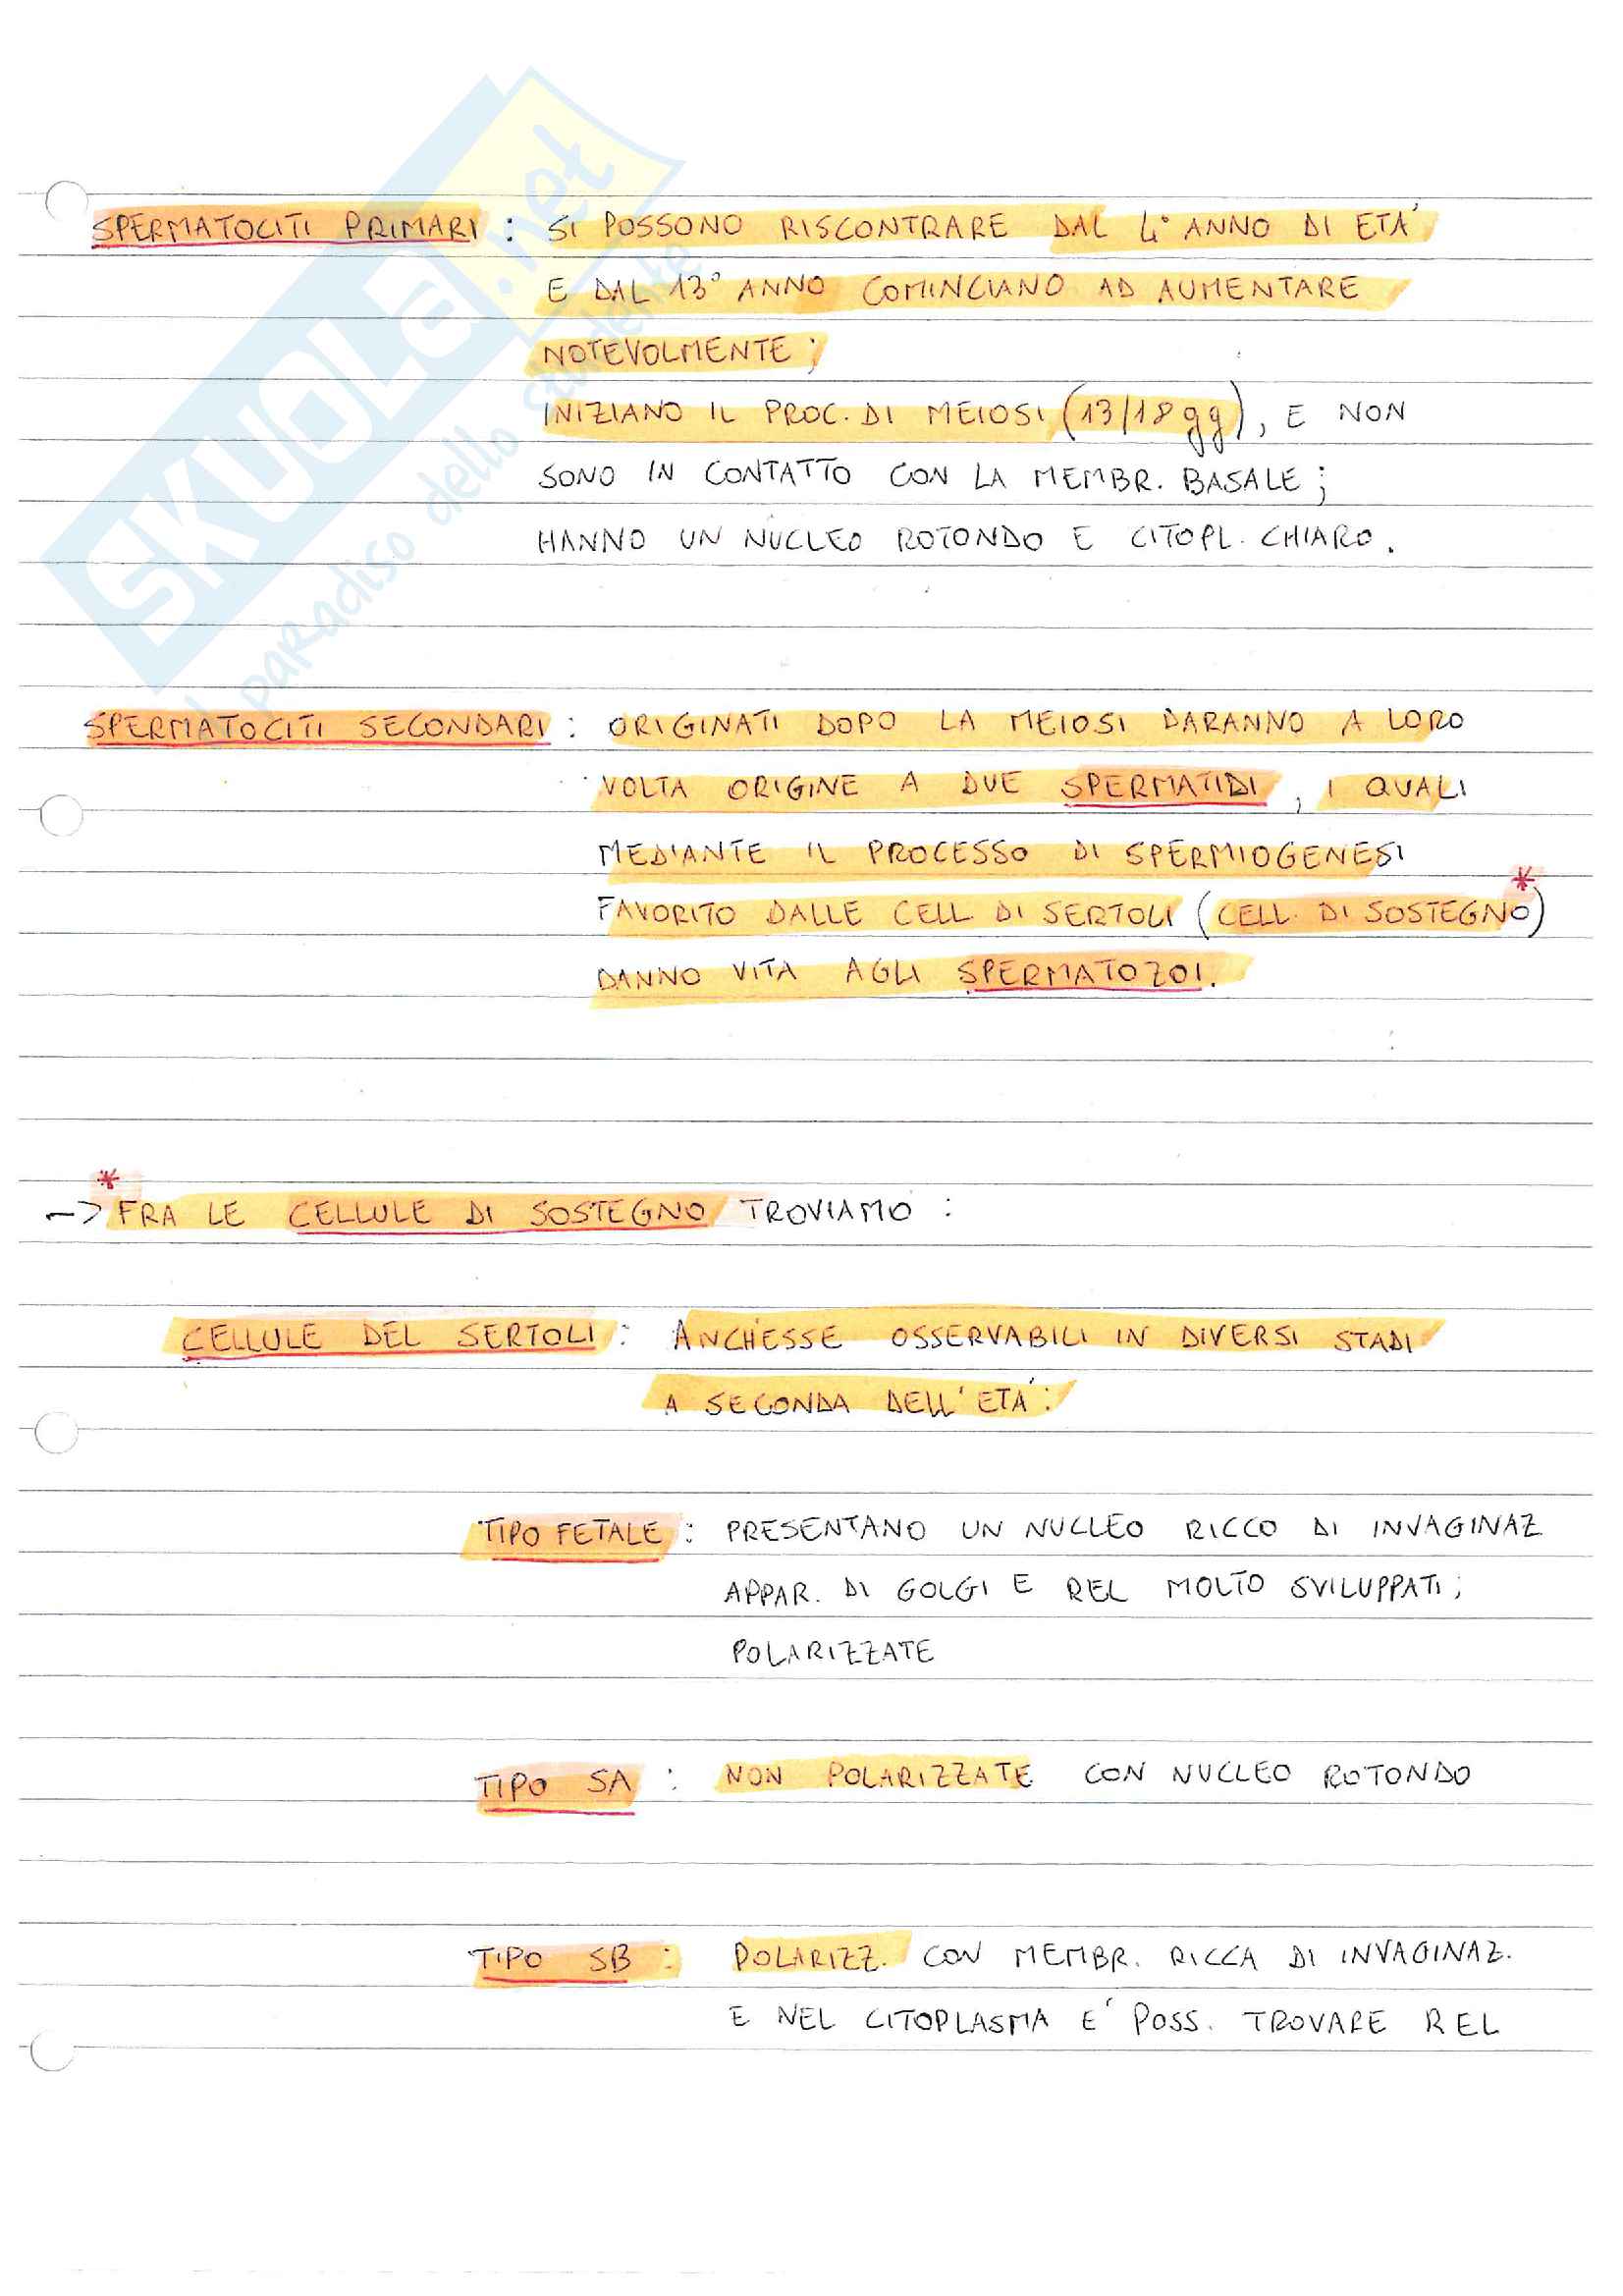 SKUOLA.net
il paradiso dello studente
SPERMATOCITI PRIMARI : SI POSSONO RISCONTRARE DAL 4° ANNO DI ETA'
E DAL 13° ANNO COMINCIANO AD AUMENTARE
NOTEVOLMENTE ;
INIZIANO IL PROC. DI MEIOSI (13/18 gg), E NON
SONO IN CONTATTO CON LA MEMBR. BASALE ;
HANNO UN NUCLEO ROTONDO E CITOPL. CHIARO.
SPERMATOCITI SECONDARI : ORIGINATI DOPO LA MEIOSI DARANNO A LORO
VOLTA ORIGINE A DUE SPERMATIDI , I QUALI
MEDIANTE IL PROCESSO DI SPERMIOGENESI
FAVORITO DALLE CELL. DI SERTOLI (CELL. DI SOSTEGNO*)
DANNO VITA AGLI SPERMATOZOI.
-> *FRA LE CELLULE DI SOSTEGNO TROVIAMO :
CELLULE DEL SERTOLI : ANCH'ESSE OSSERVABILI IN DIVERSI STADI
A SECONDA DELL'ETA' :
TIPO FETALE : PRESENTANO UN NUCLEO RICCO DI INVAGINAZ
APPAR. DI GOLGI E REL MOLTO SVILUPPATI ;
POLARIZZATE
TIPO SA : NON POLARIZZATE CON NUCLEO ROTONDO
TIPO SB : POLARIZZ. CON MEMBR. RICCA DI INVAGINAZ.
E NEL CITOPLASMA E' POSS. TROVARE REL